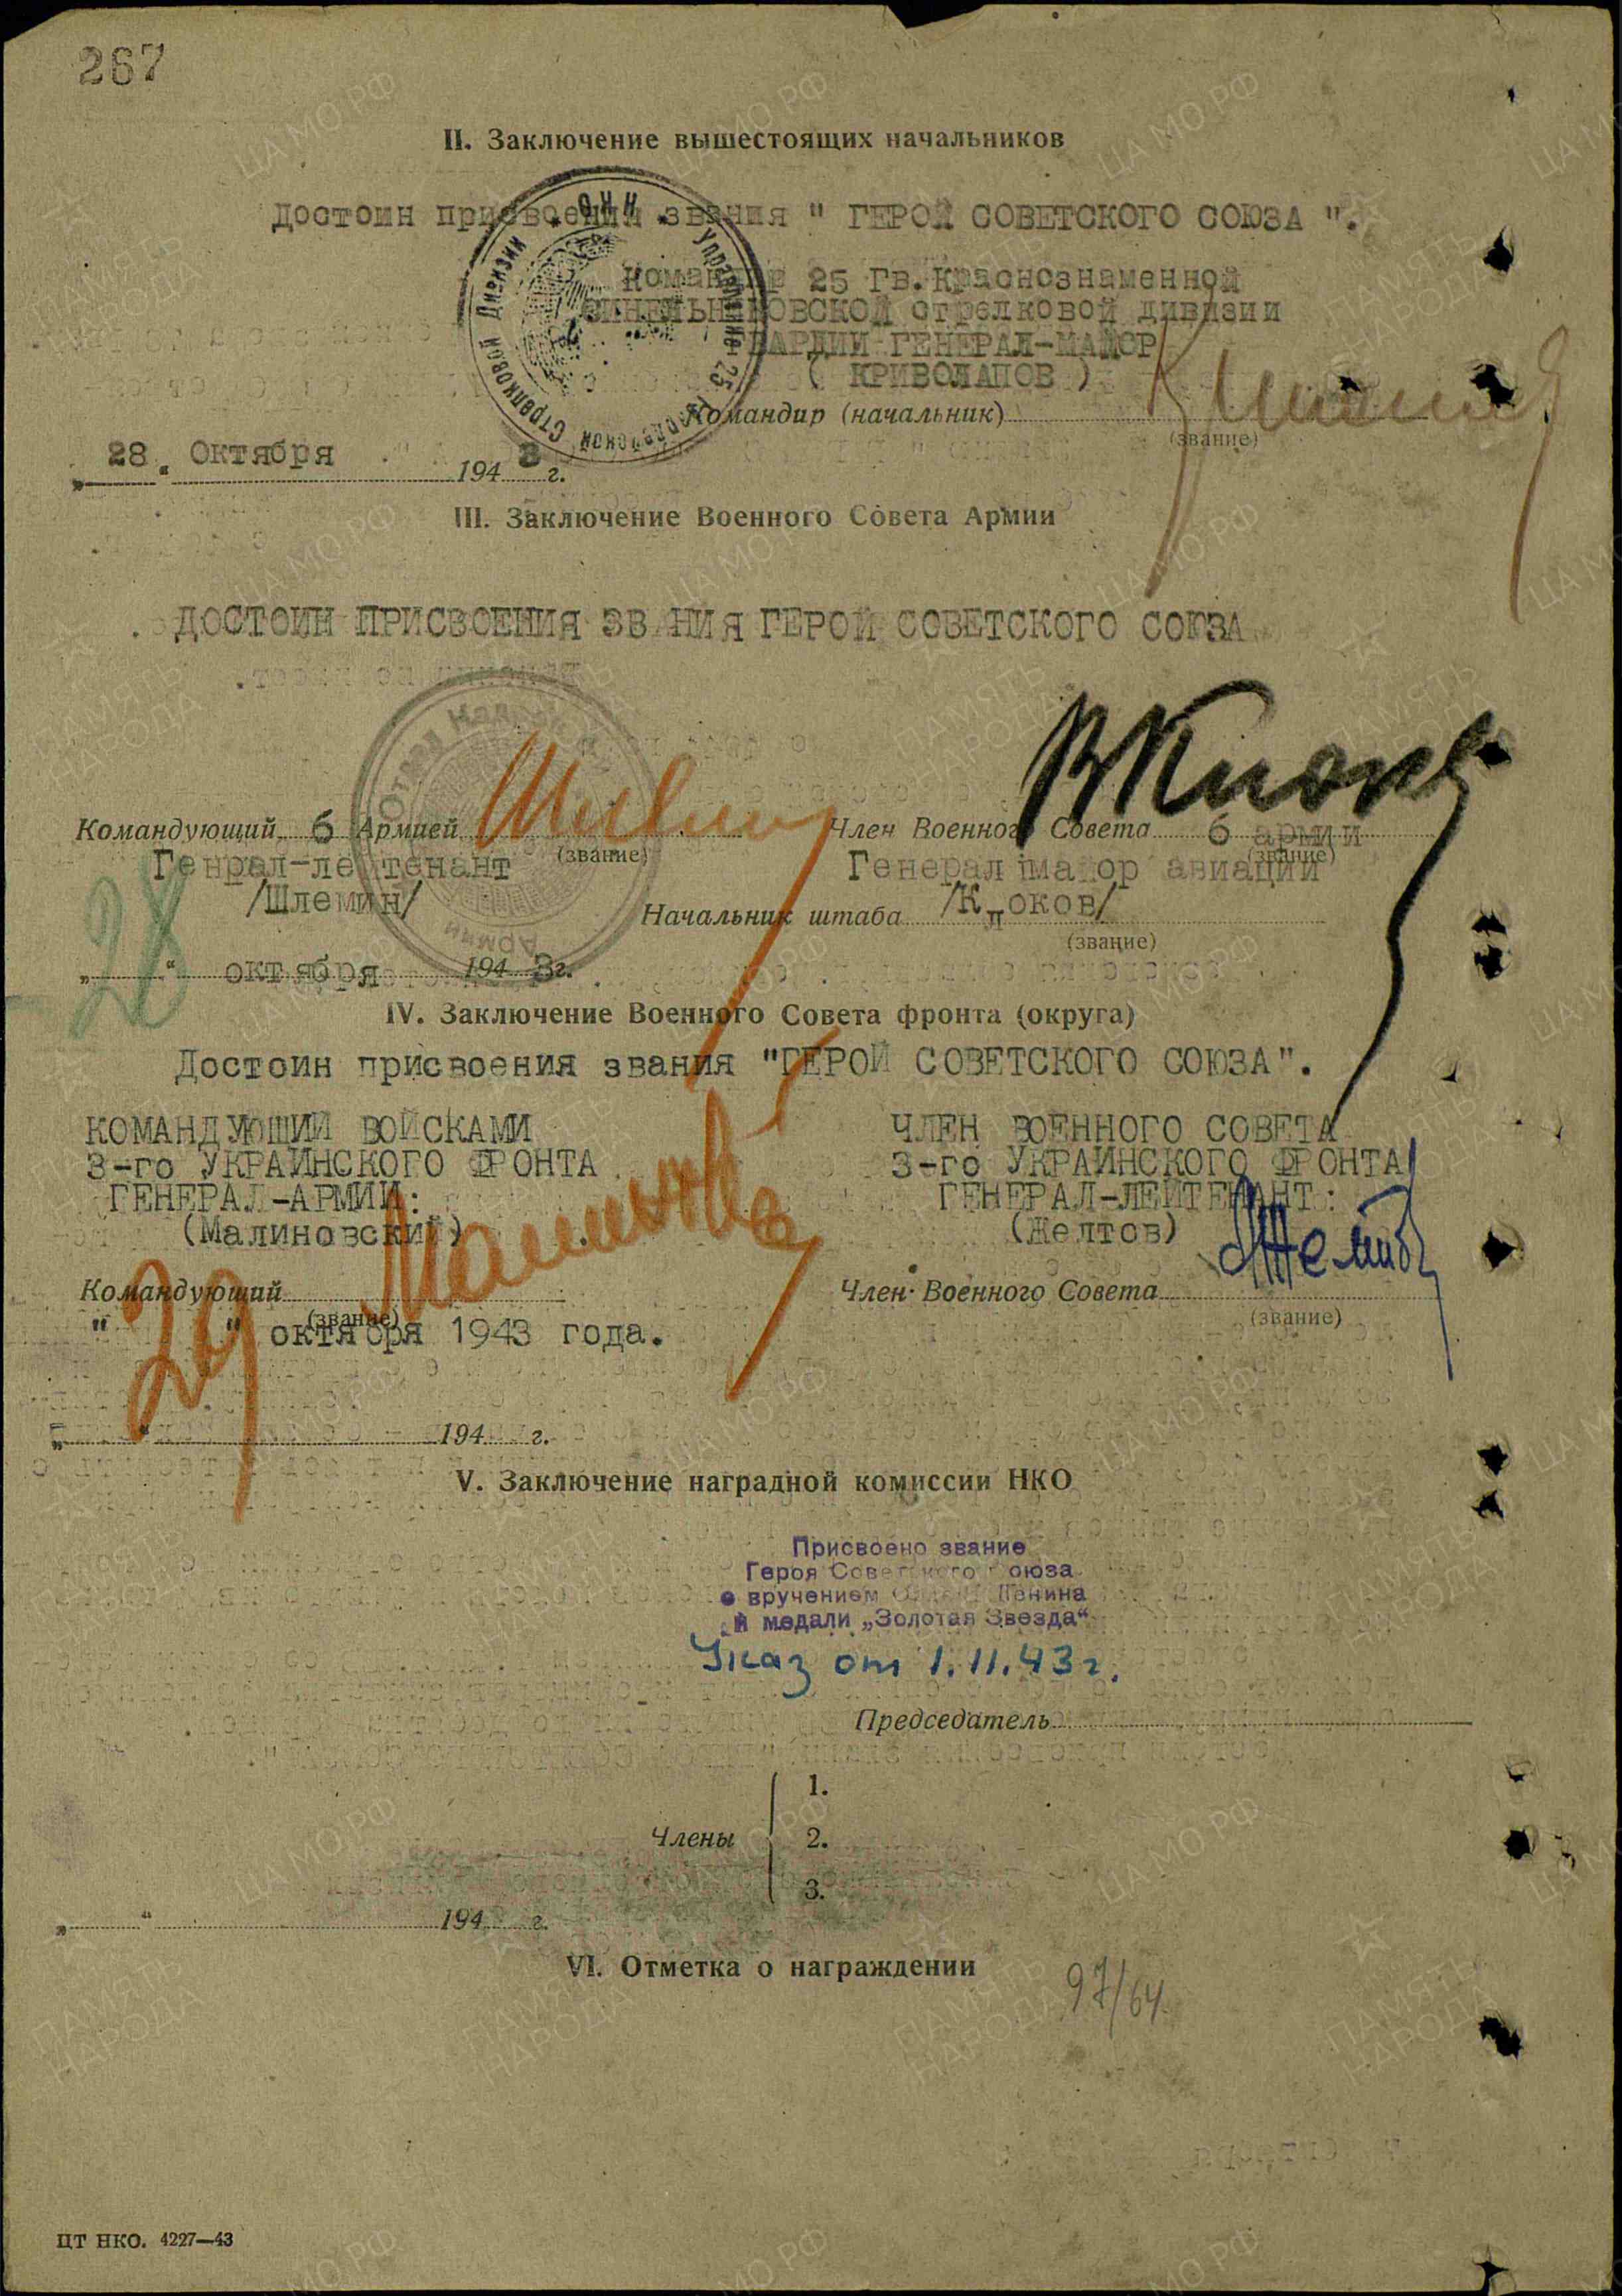 267
II. Заключение вышестоящих начальников
Достоин присвоения звания " ГЕРОЙ СОВЕТСКОГО СОЮЗА ".
Командир 25 Гв.Краснознаменной
СИНЕЛЬНИКОВСКОЙ стрелковой дивизии
ГВАРДИИ ГЕНЕРАЛ-МАЙОР
( КРИВОЛАПОВ )
Командир (начальник)
(звание)
28 " Октября 1943 г.
III. Заключение Военного Совета Армии
ДОСТОИН ПРИСВОЕНИЯ ЗВАНИЯ ГЕРОЙ СОВЕТСКОГО СОЮЗА
Командующий 6 Армией
(звание)
Генрал-лейтенант
/Шлемин/
Член Военного Совета 6 армии
(звание)
Генерал майор авиации
/Клоков/
Начальник штаба
(звание)
28 " октября 1943г.
IV. Заключение Военного Совета фронта (округа)
Достоин присвоения звания "ГЕРОЙ СОВЕТСКОГО СОЮЗА".
КОМАНДУЮЩИЙ ВОЙСКАМИ
3-го УКРАИНСКОГО ФРОНТА
ГЕНЕРАЛ-АРМИИ:
(Малиновский)
ЧЛЕН ВОЕННОГО СОВЕТА
3-го УКРАИНСКОГО ФРОНТА
ГЕНЕРАЛ-ЛЕЙТЕНАНТ:
(Желтов)
Командующий
(звание)
Член Военного Совета
(звание)
" 29 " октября 1943 года.
„ “ 194 г.
V. Заключение наградной комиссии НКО
Присвоено звание
Героя Советского Союза
с вручением Ордена Ленина
и медали „Золотая Звезда“
Указ от 1.11.43 г.
Председатель
Члены
1.
2.
3.
„ “ 194 г.
VI. Отметка о награждении
97/64
ЦТ НКО. 4227—43